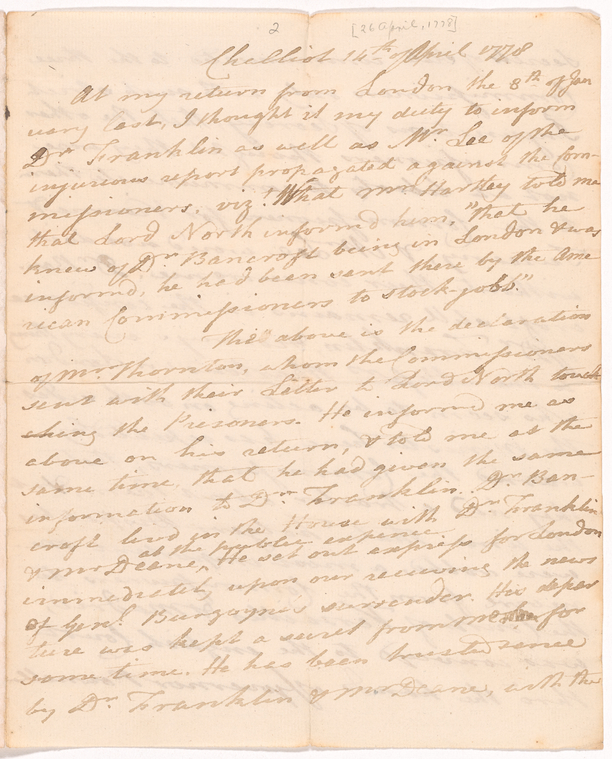 2
[26 April, 1778]
Challiot 14th of April 1778
At my return from London the 8th of Jan
uary last, I thought it my duty to inform
Dr Franklin as well as Mr. Lee of the
injurious report propagated against the Com-
missioners. viz! That Mr. Hartley told me
that Lord North informd him, "that he
knew of Dr Bancroft being in London & was
informd, he had been sent there by the Ame
rican Commissioners to stock-jobb."
The above is the declaration
of Mr. Thornton, whom the Commissioners
sent with their Letter to Lord North touch
ching the Prisoners. He informd me as
above on his return, & told me at the
same time, that he had given the same
information to Dr. Franklin. Dr. Ban-
croft lived in the House with Dr. Franklin
at the public expence
& Mr Deane, He set out express for London
immediately upon our receiving the news
of Genl. Burgoyne's surrender. His depar
ture was kept a secret from me for
some time. He has been trusted since
by Dr. Franklin & Mr Deane, with the